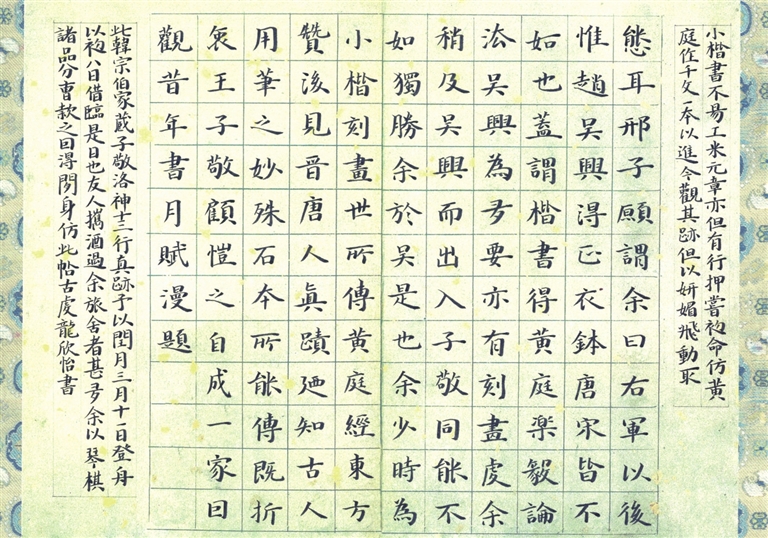 小楷書不易工米元章亦但有行押嘗被命仿黄
庭作千文一本以進今觀其跡但以妍媚飛動取
態耳邢子愿謂余曰右軍以後
惟趙吳興得正衣鉢唐宋皆不
如也蓋謂楷書得黄庭樂毅論
法吳興為多要亦有刻畫處余
稍及吳興而出入子敬同能不
如獨勝余於吳是也余少時為
小楷刻畫世所傳黄庭經東方
贊後見晉唐人真蹟廼知古人
用筆之妙殊石本所能傳既折
衷王子敬顧愷之自成一家曰
觀昔年書月賦漫題
此韓宗伯家蔵子敬洛神十三行真跡予以閏月三月十一日登舟
以初八日借臨是日也友人攜酒過余旅舍者甚多余以琴棋
諸品分曹款之曰得閒身仿此帖古虔龍欣怡書